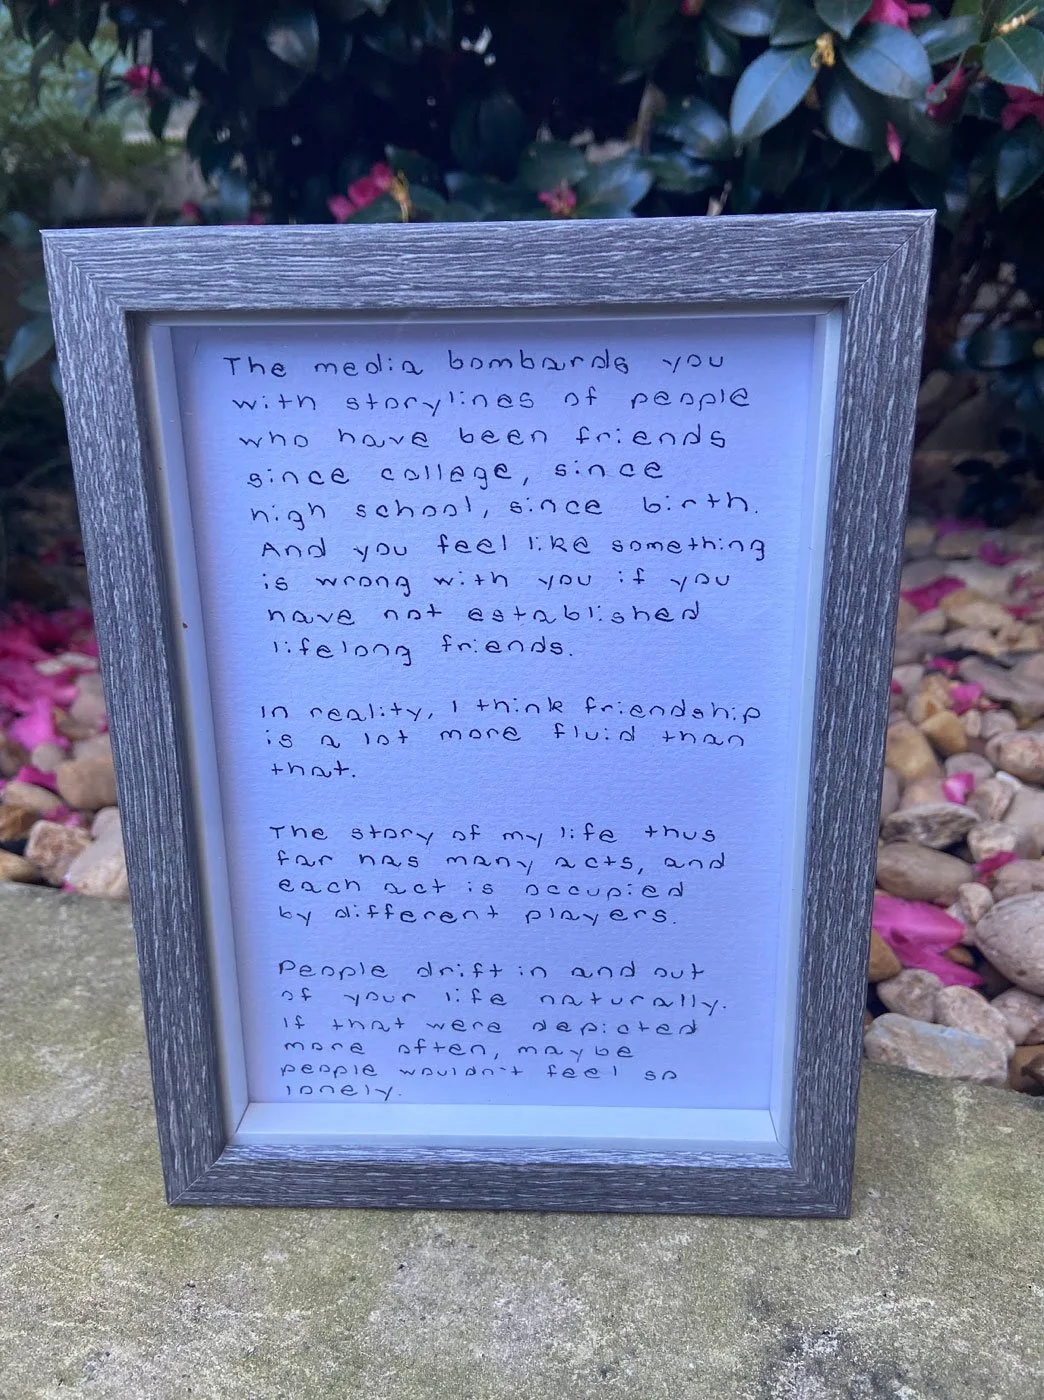 The media bombards you
with storylines of people
who have been friends
since college, since
high school, since birth.
And you feel like something
is wrong with you if you
have not established
lifelong friends.
In reality, I think friendship
is a lot more fluid than
that.
The story of my life thus
far has many acts, and
each act is occupied
by different players.
People drift in and out
of your life naturally.
If that were depicted
more often, maybe
people wouldn't feel so
lonely.